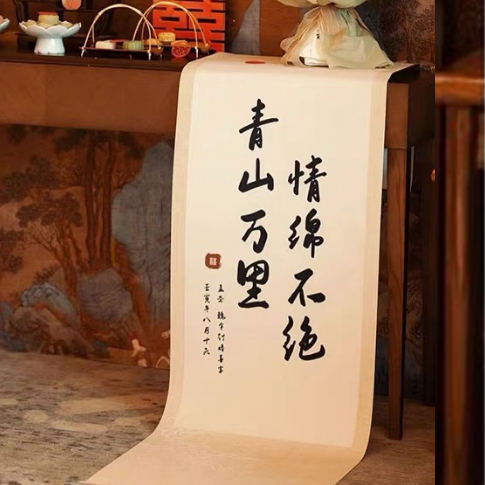 情绵不绝
青山万里
壬寅年八月十九
囍